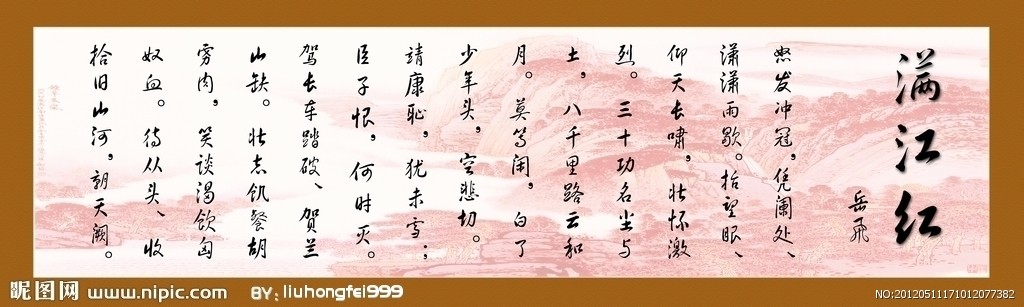 满江红
岳飛
怒发冲冠，凭阑处、
潇潇雨歇。抬望眼、
仰天长啸，壮怀激
烈。三十功名尘与
土，八千里路云和
月。莫等闲，白了
少年头，空悲切。
靖康耻，犹未雪；
臣子恨，何时灭。
驾长车踏破、贺兰
山缺。壮志饥餐胡
虏肉，笑谈渴饮匈
奴血。待从头、收
拾旧山河，朝天阙。
昵图网 www.nipic.com BY: liuhongfei999
NO:20120511171012077382